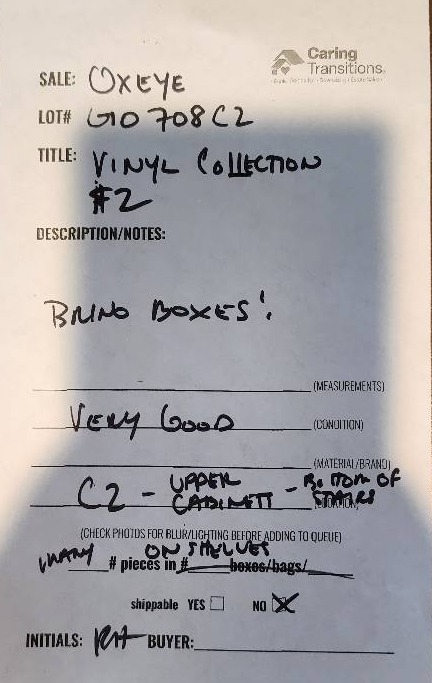 Caring
Transitions
SALE: OXEYE
LOT# G10708C2
TITLE: VINYL COLLECTION
#2
DESCRIPTION/NOTES:
BRING BOXES!
(MEASUREMENTS)
VERY GOOD (CONDITION)
(MATERIAL/BRAND)
C2 - UPPER CABINETT - BOTTOM OF STAIRS (LOCATION)
(CHECK PHOTOS FOR BLUR/LIGHTING BEFORE ADDING TO QUEUE)
MANY # pieces in # ON SHELVES boxes/bags/
shippable YES NO X
INITIALS: RH BUYER: